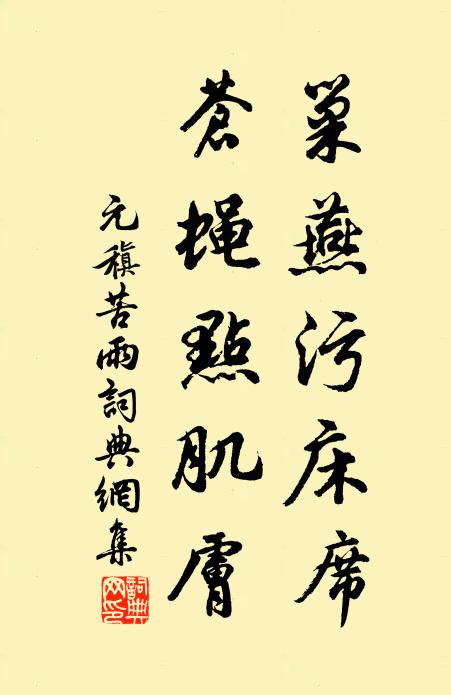 巢燕污床席
苍蝇點肌膚
元稹苦雨詞典網集
詞典網印